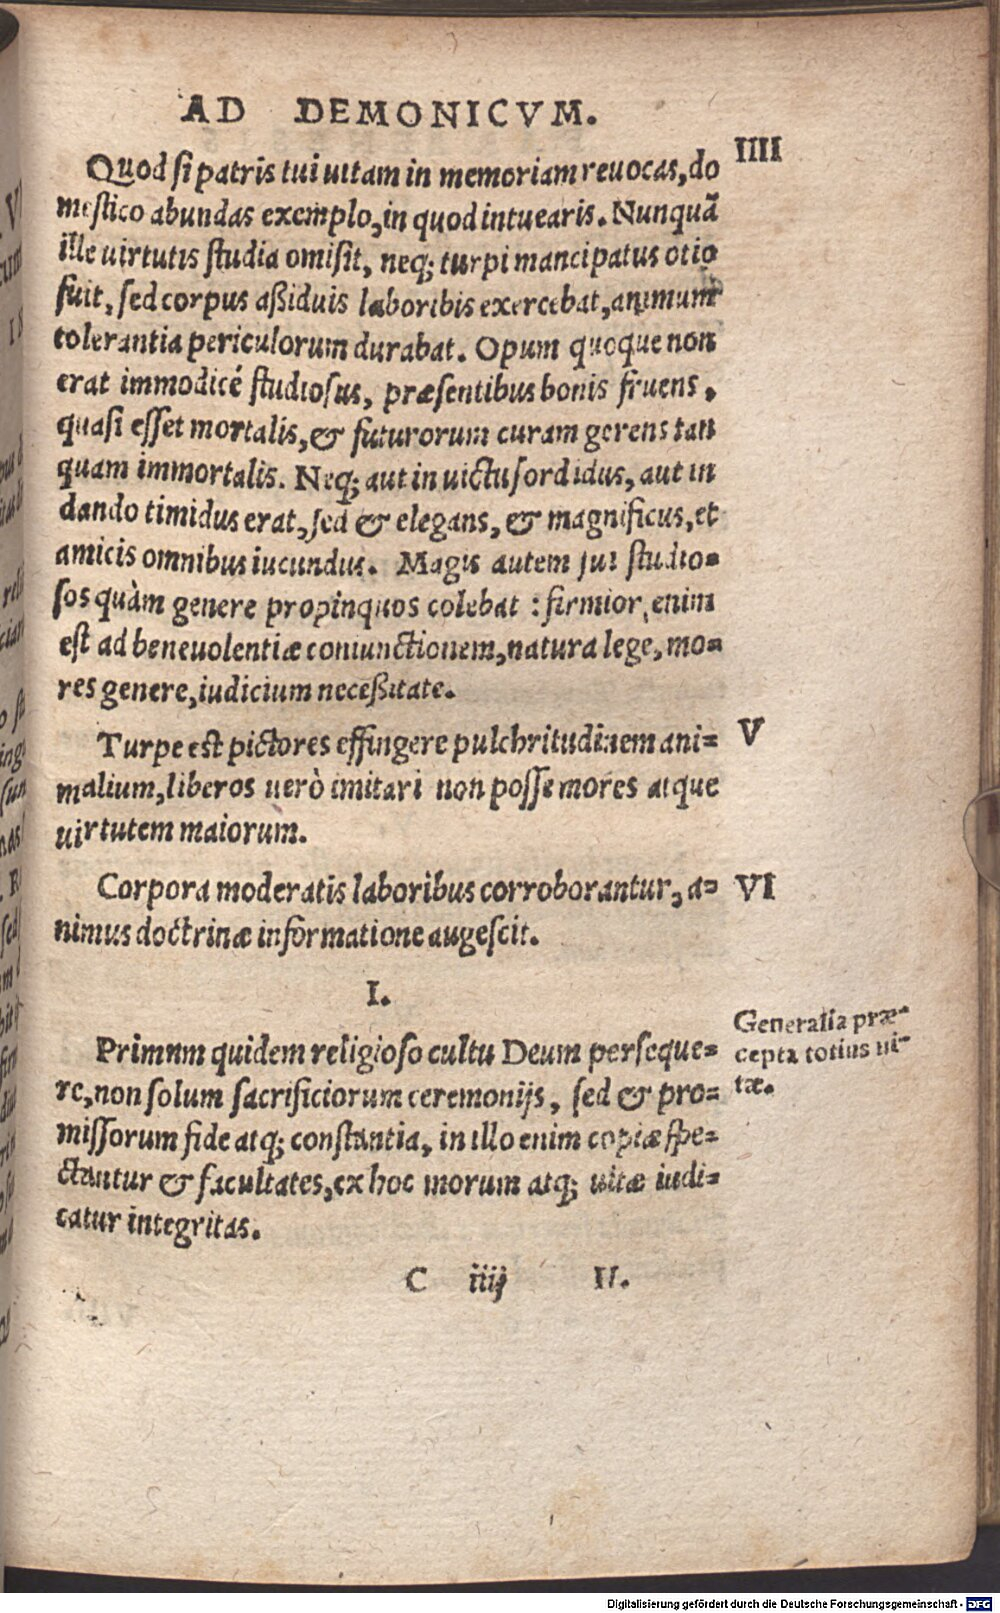 AD DEMONICVM.
Quod si patris tui uitam in memoriam reuocas, do IIII
mestico abundas exemplo, in quod intuearis. Nunquā
ille uirtutis studia omisit, neq; turpi mancipatus otio
fuit, sed corpus aßiduis laboribis exercebat, animum
tolerantia periculorum durabat. Opum quoque non
erat immodicé studiosus, præsentibus bonis fruens,
quasi esset mortalis, & futurorum curam gerens tan
quam immortalis. Neq; aut in uictu sordidus, aut in
dando timidus erat, sed & elegans, & magnificus, et
amicis omnibus iucundus. Magis autem sui studio=
sos quàm genere propinquos colebat : firmior, enim
est ad beneuolentiæ coniunctionem, natura lege, mo=
res genere, iudicium neceßitate.
Turpe est pictores effingere pulchritudinem ani= V
malium, liberos uerò imitari non posse mores atque
uirtutem maiorum.
Corpora moderatis laboribus corroborantur, a= VI
nimus doctrinæ informatione augescit.
I.
Primum quidem religioso cultu Deum perseque=
re, non solum sacrificiorum ceremonijs, sed & pro=
missorum fide atq; constantia, in illo enim copiæ spe=
ctantur & facultates, ex hoc morum atq; uitæ iudi=
catur integritas.
Generalia præ-
cepta totius ui-
tæ.
C iiij II.
Digitalisierung gefördert durch die Deutsche Forschungsgemeinschaft - DFG